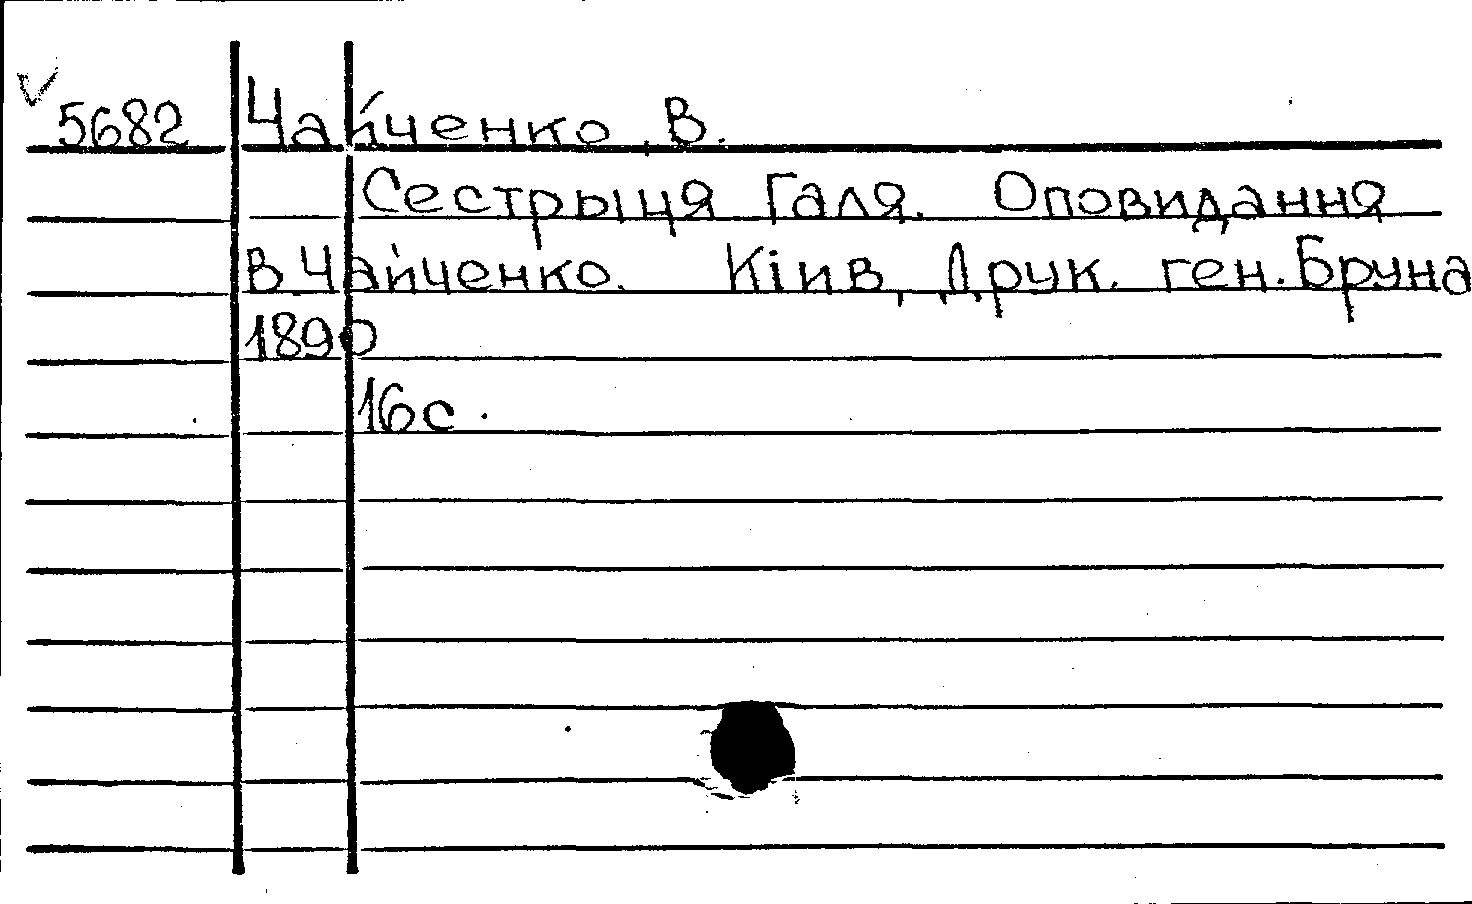 5682 Чайченко, В.
Сестрыця Галя. Оповидання
В Чайченко. Кіив, Друк. ген. Бруна
1890
16 с.